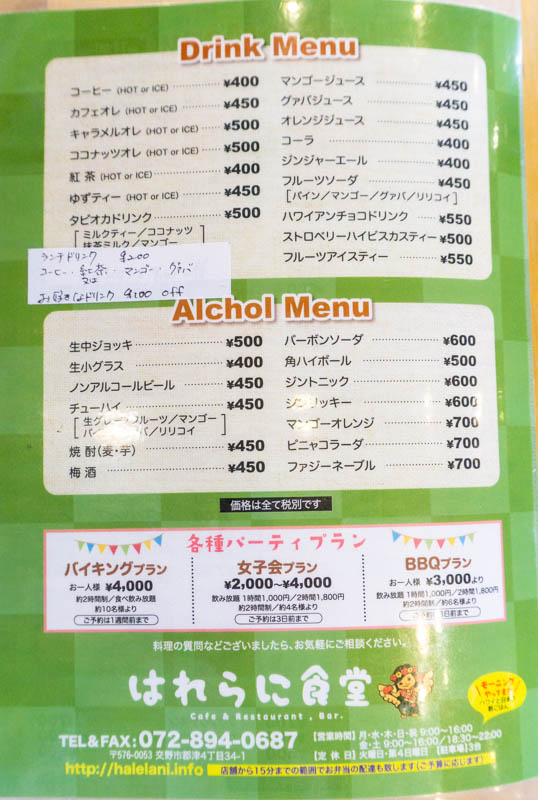 Drink Menu
コーヒー (HOT or ICE) ¥400
カフェオレ (HOT or ICE) ¥450
キャラメルオレ (HOT or ICE) ¥500
ココナッツオレ (HOT or ICE) ¥500
紅茶 (HOT or ICE) ¥400
ゆずティー (HOT or ICE) ¥450
タピオカドリンク ¥500
[ミルクティー／ココナッツ
抹茶ミルク／マンゴー
ランチドリンク ¥200
コーヒー・紅茶・マンゴー・グァバ
又は
お好きなドリンク ¥200 off
マンゴージュース ¥450
グァバジュース ¥450
オレンジジュース ¥450
コーラ ¥400
ジンジャーエール ¥400
フルーツソーダ ¥450
[パイン／マンゴー／グァバ／リリコイ]
ハワイアンチョコドリンク ¥550
ストロベリーハイビスカスティー ¥500
フルーツアイスティー ¥550
Alchol Menu
生中ジョッキ ¥500
生小グラス ¥400
ノンアルコールビール ¥450
チューハイ ¥450
[生グレープフルーツ／マンゴー
／リリコイ]
焼酎(麦・芋) ¥450
梅酒 ¥450
バーボンソーダ ¥600
角ハイボール ¥500
ジントニック ¥600
ジンリッキー ¥600
マンゴーオレンジ ¥700
ピニャコラーダ ¥700
ファジーネーブル ¥700
価格は全て税別です
各種パーティプラン
バイキングプラン
お一人様 ¥4,000
約2時間制／食べ飲み放題
約10名様より
ご予約は1週間前まで
女子会プラン
¥2,000〜¥4,000
飲み放題 1時間1,000円／2時間1,800円
約2時間制／約4名様より
ご予約は3日前まで
BBQプラン
お一人様 ¥3,000より
飲み放題 1時間1,000円／2時間1,800円
約2時間制／約6名様より
ご予約は 日前まで
料理の質問などございましたら、お気軽にご相談ください。
はれらに食堂
Cafe & Restaurant, Bar.
モーニング
やってます!
ハワイと日本の
朝ごはん
TEL&FAX:072-894-0687
〒576-0053 交野市郡津4丁目34-1
[営業時間] 月・水・木・日・祝 9:00〜16:00
金・土 9:00〜16:00／18:30〜22:00
[定休日] 火曜日・第4日曜日 [駐車場] 3台
http://halelani.info
店舗から15分までの範囲でお弁当の配達も致します(ご予算に応じます)